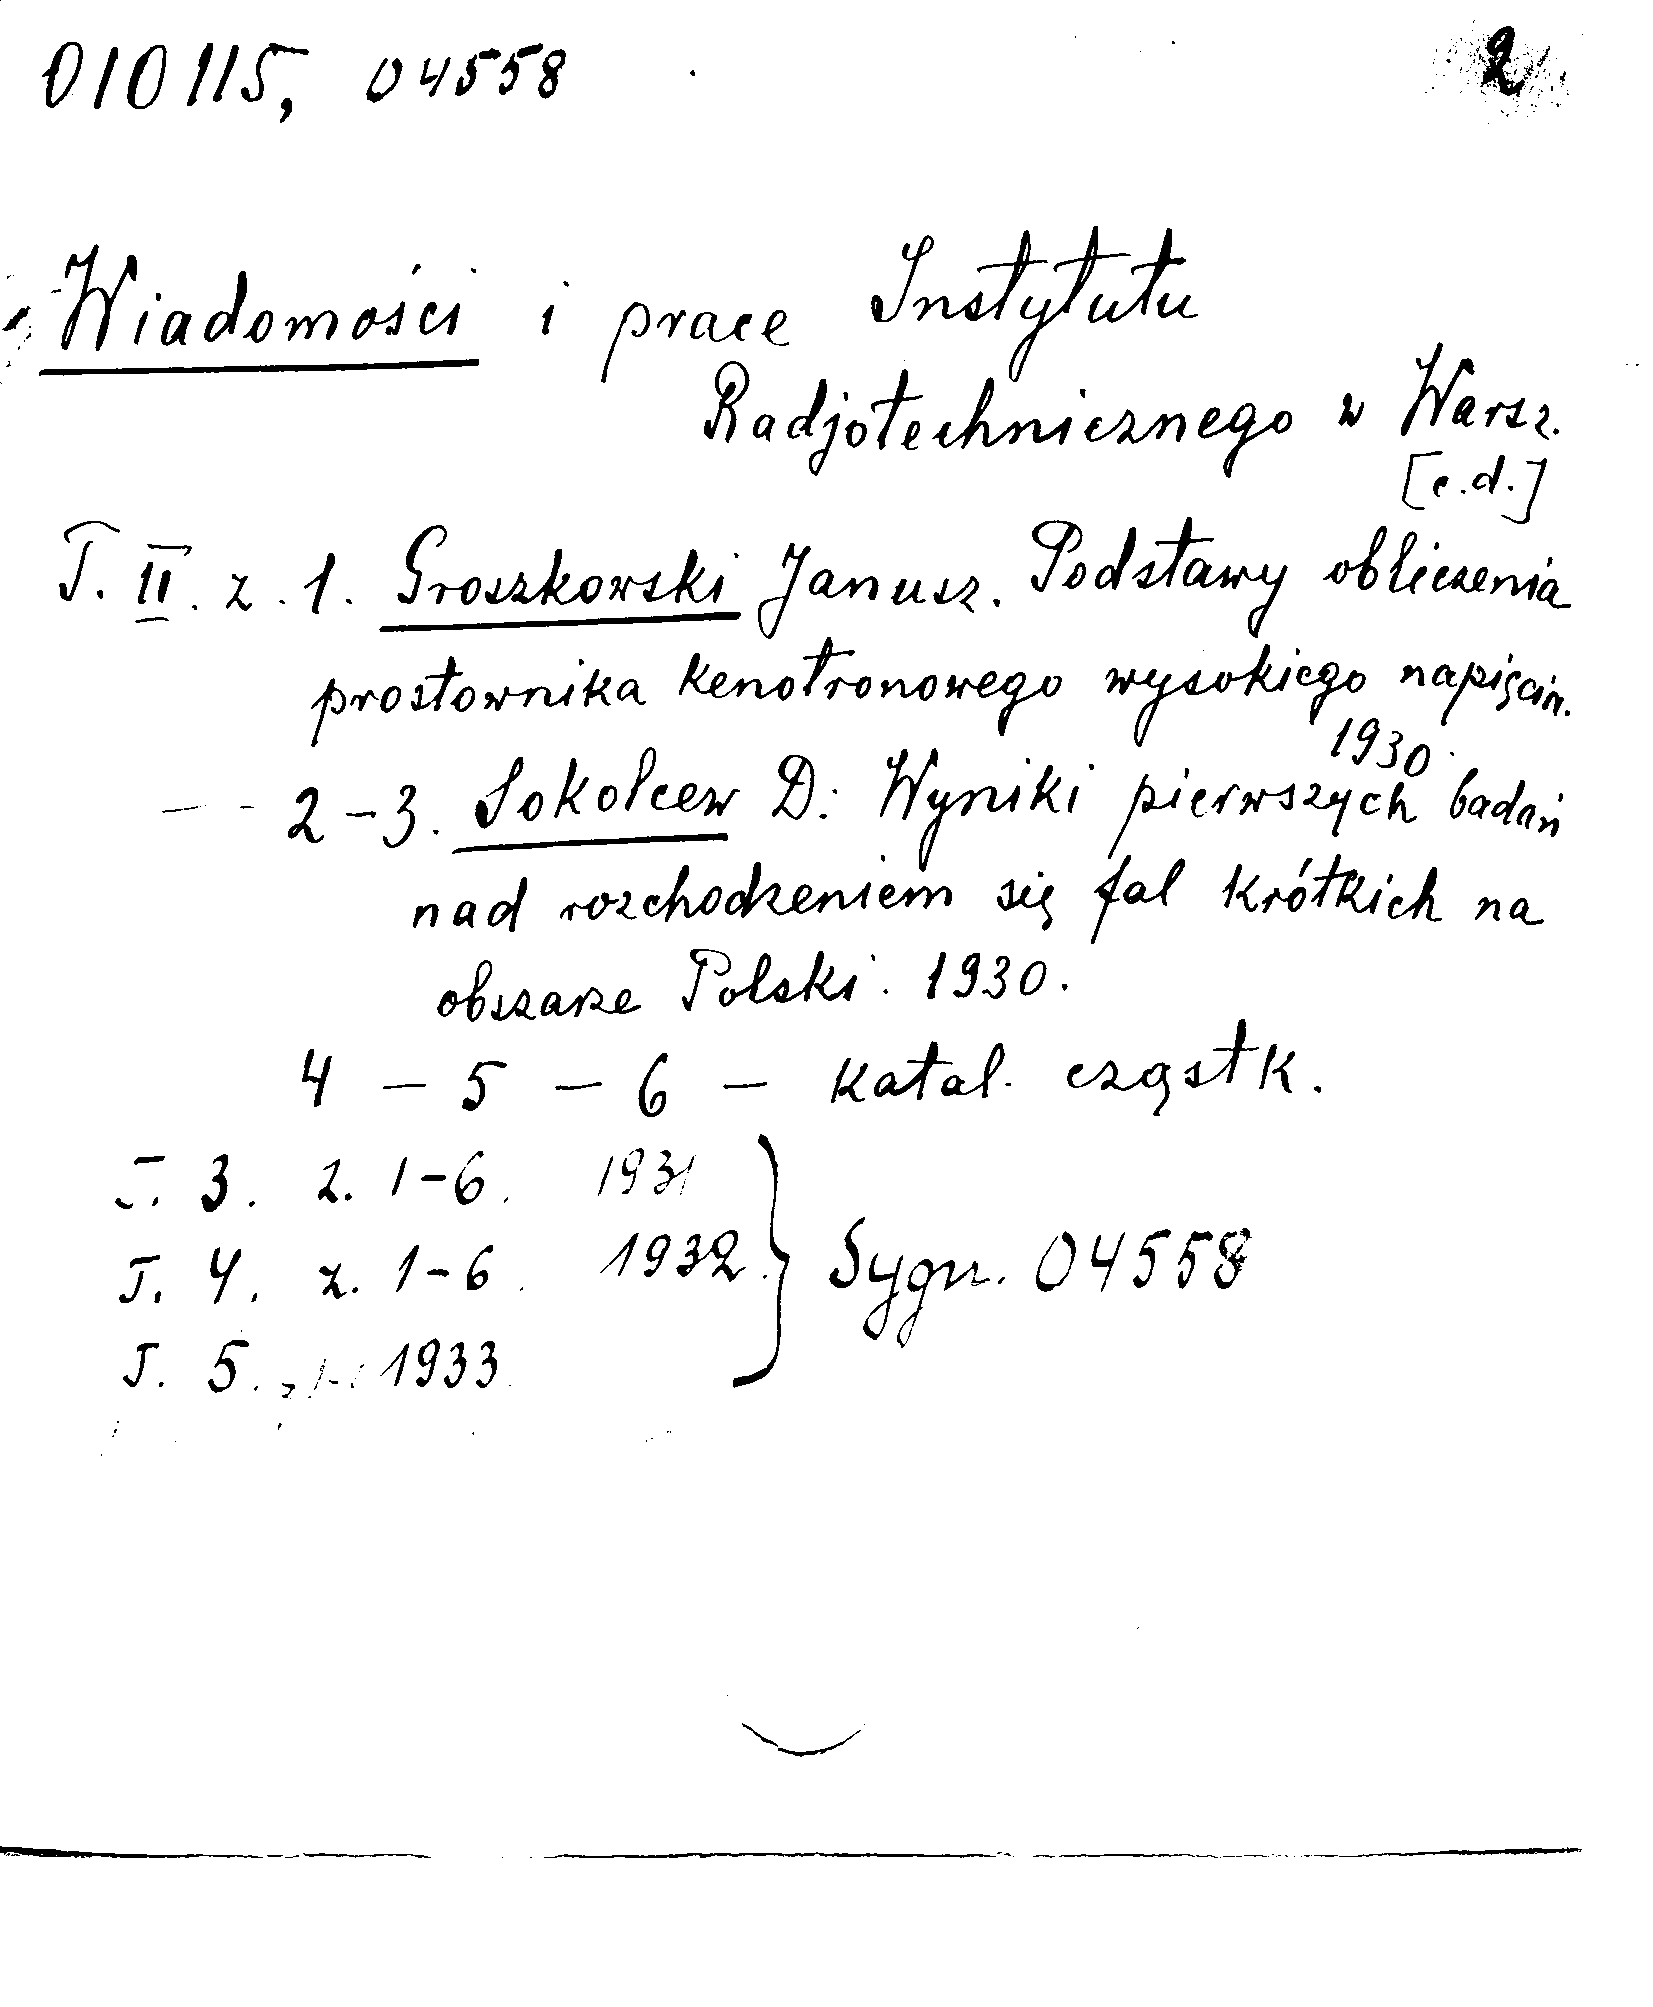 010115, 04558
2
Wiadomości i prace Instytutu
Radjotechnicznego w Warsz.
[c.d.]
T. II. z. 1. Groszkowski Janusz. Podstawy obliczenia
prostownika kenotronowego wysokiego napięcia.
1930.
— - 2-3. Sokolcew D: Wyniki pierwszych badań
nad rozchodzeniem się fal krótkich na
obszarze Polski. 1930.
4 — 5 — 6 — katal. cząstk.
T. 3. z. 1-6. 1931
T. 4. z. 1-6. 1932. } Sygn. 04558
T. 5. 1933